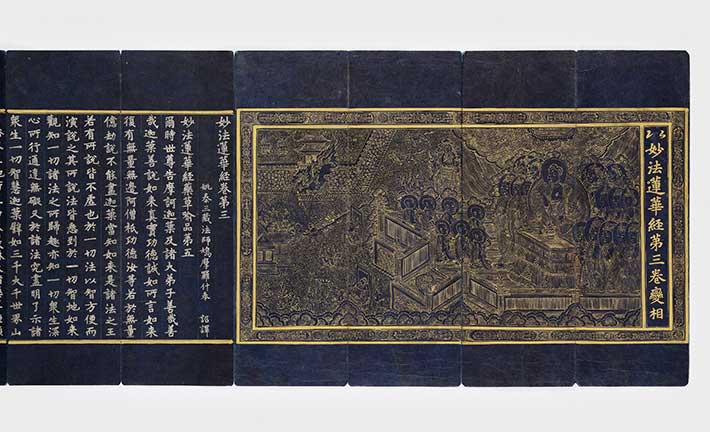 妙法蓮華經第三卷變相
妙法蓮華經卷第三
姚秦三藏法師鳩摩羅什奉 詔譯
妙法蓮華經藥草喻品第五
爾時世尊告摩訶迦葉及諸大弟子善哉善
哉迦葉善說如來真實功德誠如所言如來
復有無量無邊阿僧祇功德汝等若於無量
億劫說不能盡迦葉當知如來是諸法之王
若有所說皆不虛也於一切法以智方便而
演說之其所說法皆悉到於一切智地如來
觀知一切諸法之所歸趣亦知一切眾生深
心所行通達無礙又於諸法究盡明了示諸
眾生一切智慧迦葉譬如三千大千世界山